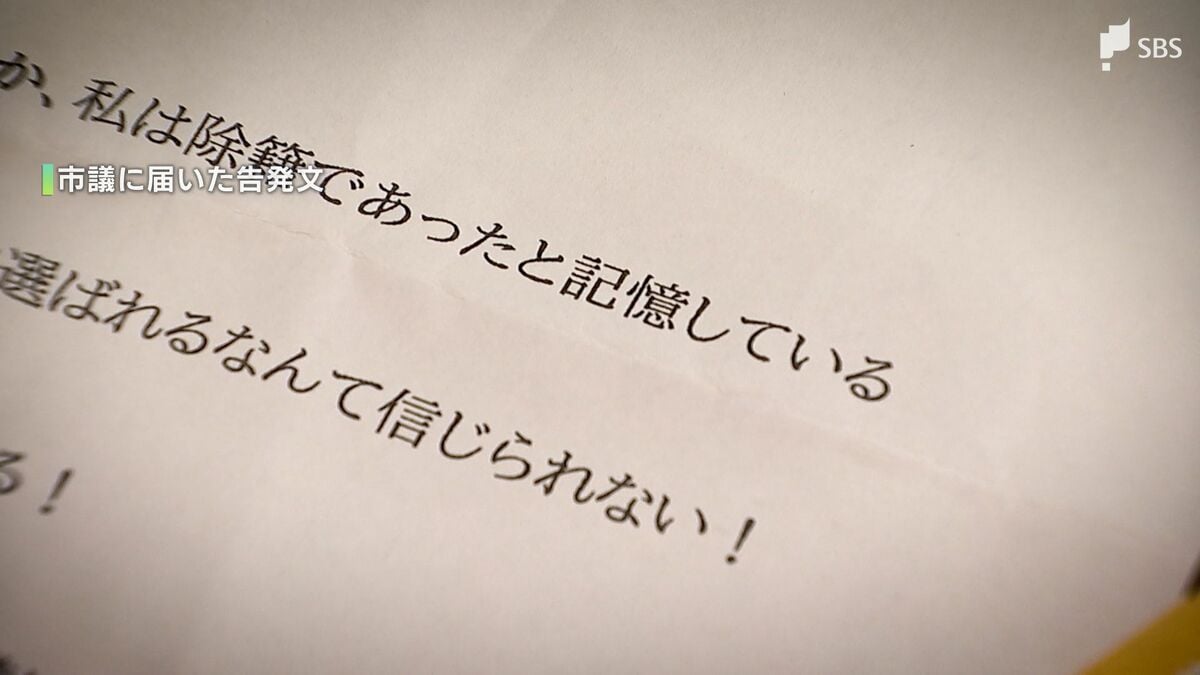 SBS
か、私は除籍であったと記憶している
市議に届いた告発文
選ばれるなんて信じられない！
る！